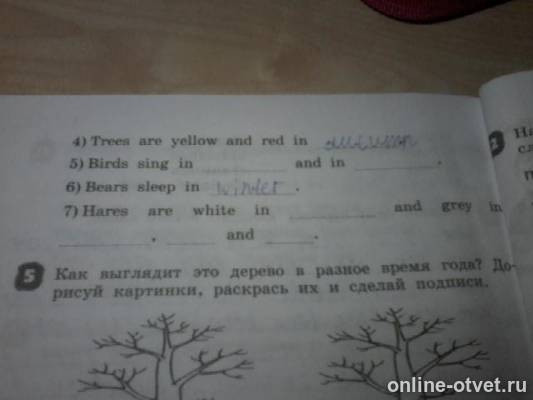 4) Trees are yellow and red in autumn
5) Birds sing in ________ and in ________.
6) Bears sleep in winter.
7) Hares are white in ________ and grey in
________, ____ and ____.
5 Как выглядит это дерево в разное время года? До-
рисуй картинки, раскрась их и сделай подписи.
online-otvet.ru